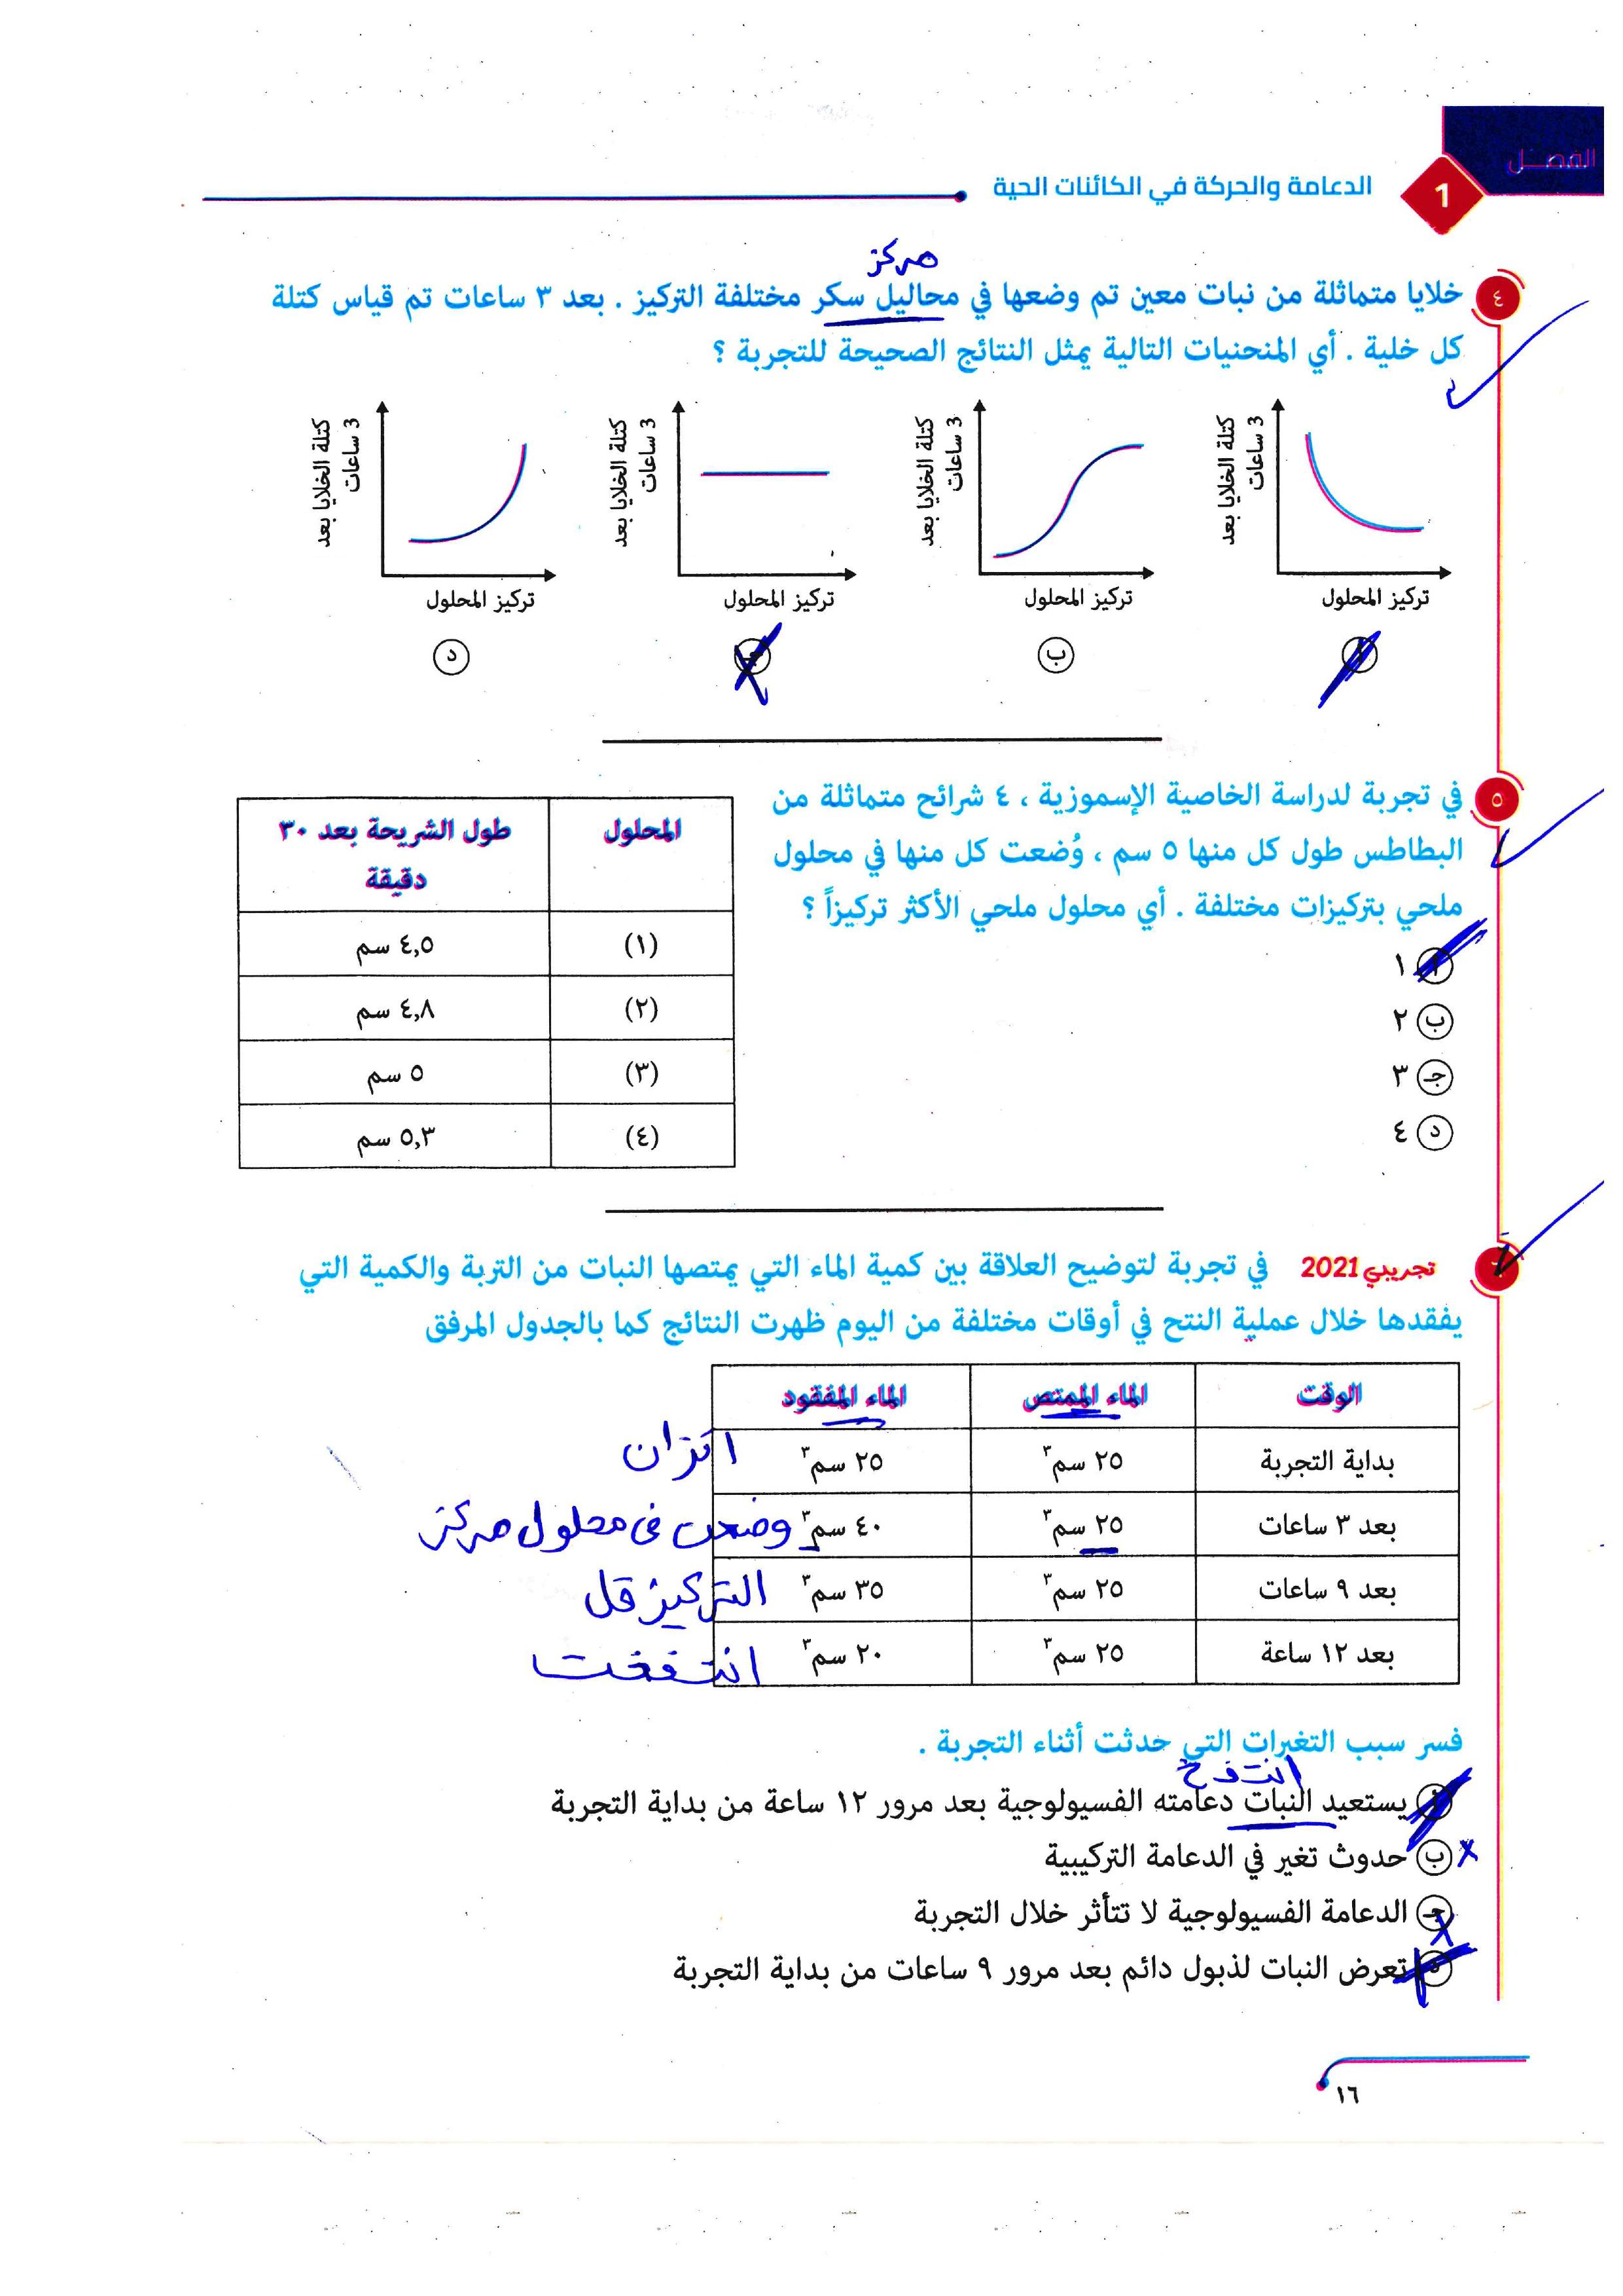 الفصل
1
الدعامة والحركة في الكائنات الحية
مركز
٤ خلايا متماثلة من نبات معين تم وضعها في محاليل سكر مختلفة التركيز . بعد ٣ ساعات تم قياس كتلة
كل خلية . أي المنحنيات التالية يمثل النتائج الصحيحة للتجربة ؟
كتلة الخلايا بعد
3 ساعات
تركيز المحلول
أ
كتلة الخلايا بعد
3 ساعات
تركيز المحلول
ب
كتلة الخلايا بعد
3 ساعات
تركيز المحلول
جـ
كتلة الخلايا بعد
3 ساعات
تركيز المحلول
د
٥ في تجربة لدراسة الخاصية الإسموزية ، ٤ شرائح متماثلة من
البطاطس طول كل منها ٥ سم ، وُضعت كل منها في محلول
ملحي بتركيزات مختلفة . أي محلول ملحي الأكثر تركيزاً ؟
أ ١
ب ٢
جـ ٣
د ٤
المحلول طول الشريحة بعد ٣٠
دقيقة
(١) ٤,٥ سم
(٢) ٤,٨ سم
(٣) ٥ سم
(٤) ٥,٣ سم
٦ تجريبي 2021 في تجربة لتوضيح العلاقة بين كمية الماء التي يمتصها النبات من التربة والكمية التي
يفقدها خلال عملية النتح في أوقات مختلفة من اليوم ظهرت النتائج كما بالجدول المرفق
الوقت الماء الممتص الماء المفقود
بداية التجربة ٢٥ سم٣ ٢٥ سم٣ اتزان
بعد ٣ ساعات ٢٥ سم٣ ٤٠ سم٣ وضعت في محلول مركز
بعد ٩ ساعات ٢٥ سم٣ ٣٥ سم٣ التركيز قل
بعد ١٢ ساعة ٢٥ سم٣ ٢٠ سم٣ انتفخت
فسر سبب التغيرات التي حدثت أثناء التجربة .
انتفخ
أ يستعيد النبات دعامته الفسيولوجية بعد مرور ١٢ ساعة من بداية التجربة
ب حدوث تغير في الدعامة التركيبية
جـ الدعامة الفسيولوجية لا تتأثر خلال التجربة
د تعرض النبات لذبول دائم بعد مرور ٩ ساعات من بداية التجربة
١٦